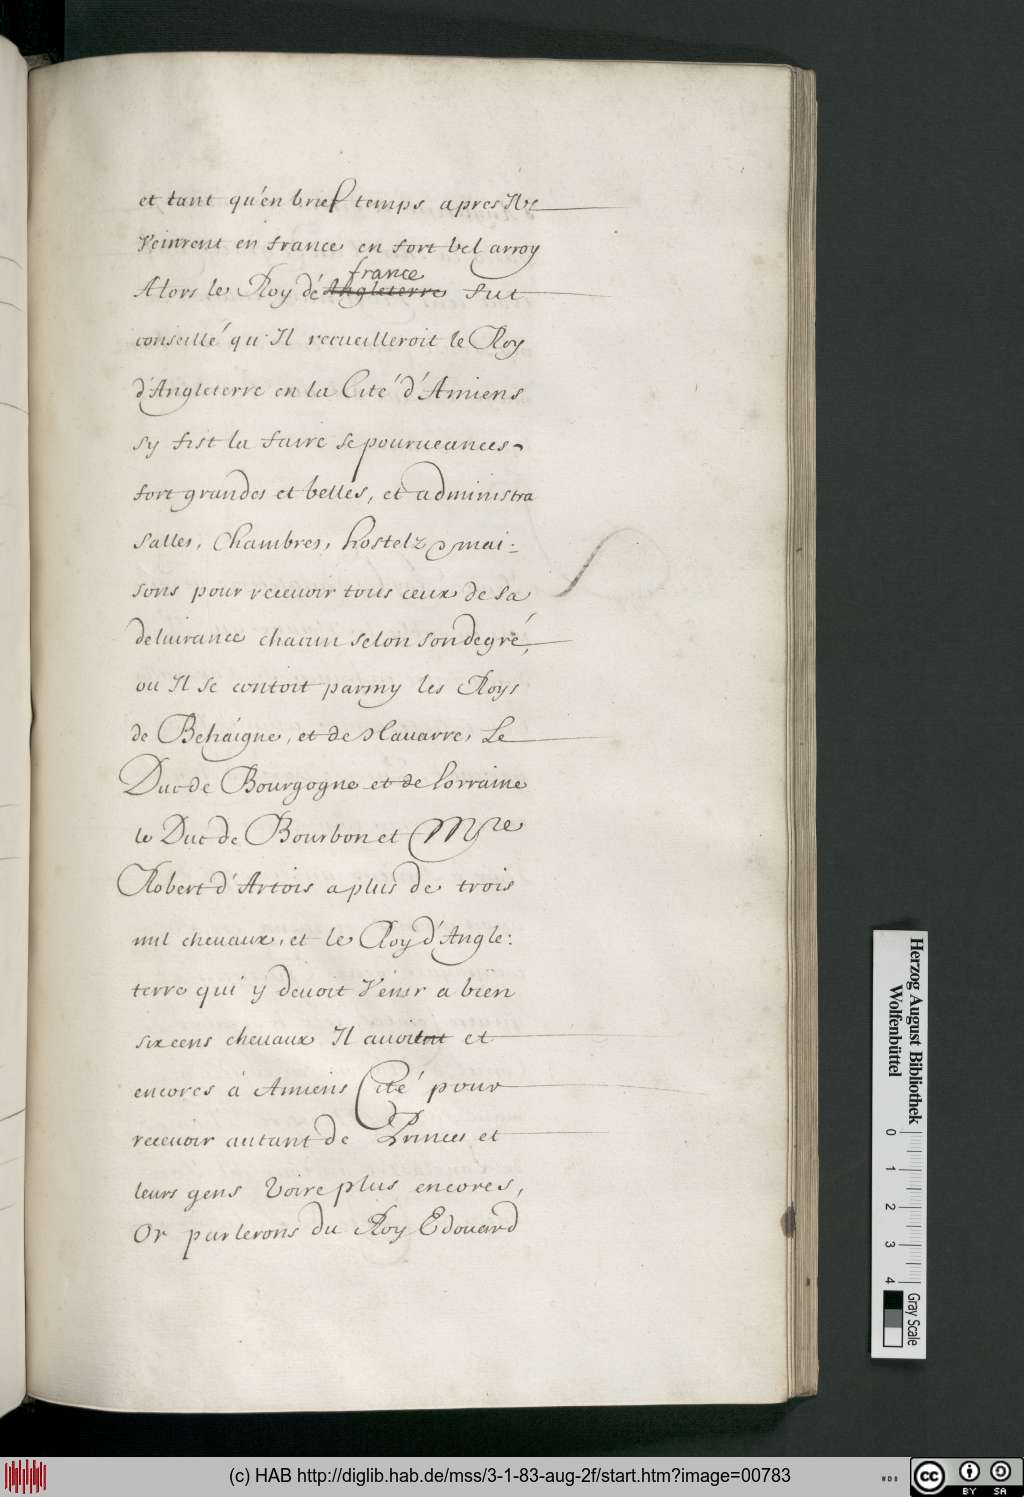 et tant qu'en brief temps apres Ils
veinrent en france en fort bel arroy
Alors le Roy de france Angleterre fut
conseillé qu'Il recueilleroit le Roy
d'Angleterre en la Cité d'Amiens
sy fist la faire se pourueances
fort grandes et belles, et administra
salles, Chambres, hostelz & mai:
sons pour receuoir tous ceux de sa
deliurance chacun selon son degré,
ou Il se contoit parmy les Roys
de Behaigne, et de Nauarre, Le
Duc de Bourgogne et de Lorraine
le Duc de Bourbon et Mre
Robert d'Artois a plus de trois
mil cheuaux, et le Roy d'Angle:
terre qui y deuoit venir a bien
six cens cheuaux Il auoient et
encores à Amiens Cité pour
receuoir autant de Princes et
leurs gens voire plus encores,
Or parlerons du Roy Edouard
Herzog August Bibliothek
Wolfenbüttel
0 1 2 3 4
Gray Scale
(c) HAB http://diglib.hab.de/mss/3-1-83-aug-2f/start.htm?image=00783
WDB
cc BY SA